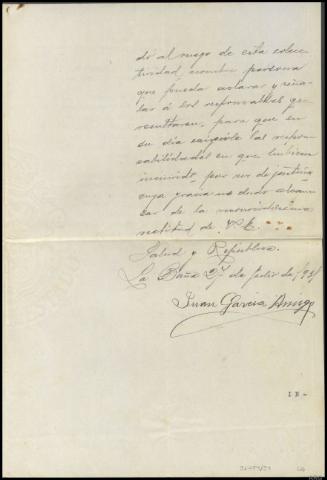 do al ruego de esta colec-
tividad, nombre persona
que pueda aclarar y seña-
lar á los responsables que
resultaren, para que en
su dia exigirle las respon-
sabilidades en que hubiesen
incurrido, por ser de justicia
cuya gracia no dudo alcan-
zar de la
rectitud de V. E.
Salud y República.
La Baña 27 de Julio de 1931
Juan García Amigo